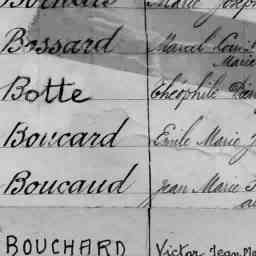 Marie Joseph
Bossard Marcel Louis
Marie
Botte Théophile
Boucard Emile Marie
Boucaud Jean Marie
BOUCHARD Victor Jean